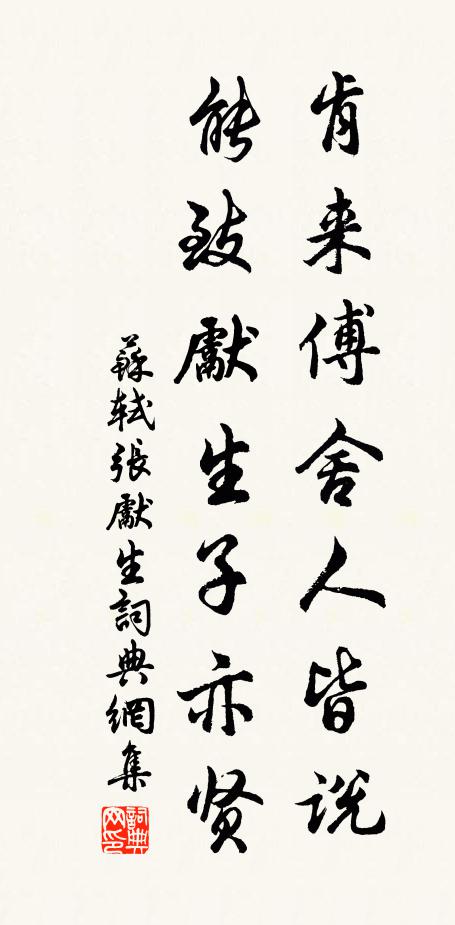 肯来傅舍人皆説
能致獻生子亦贤
蘇軾張獻生詞典網集
詞典网印